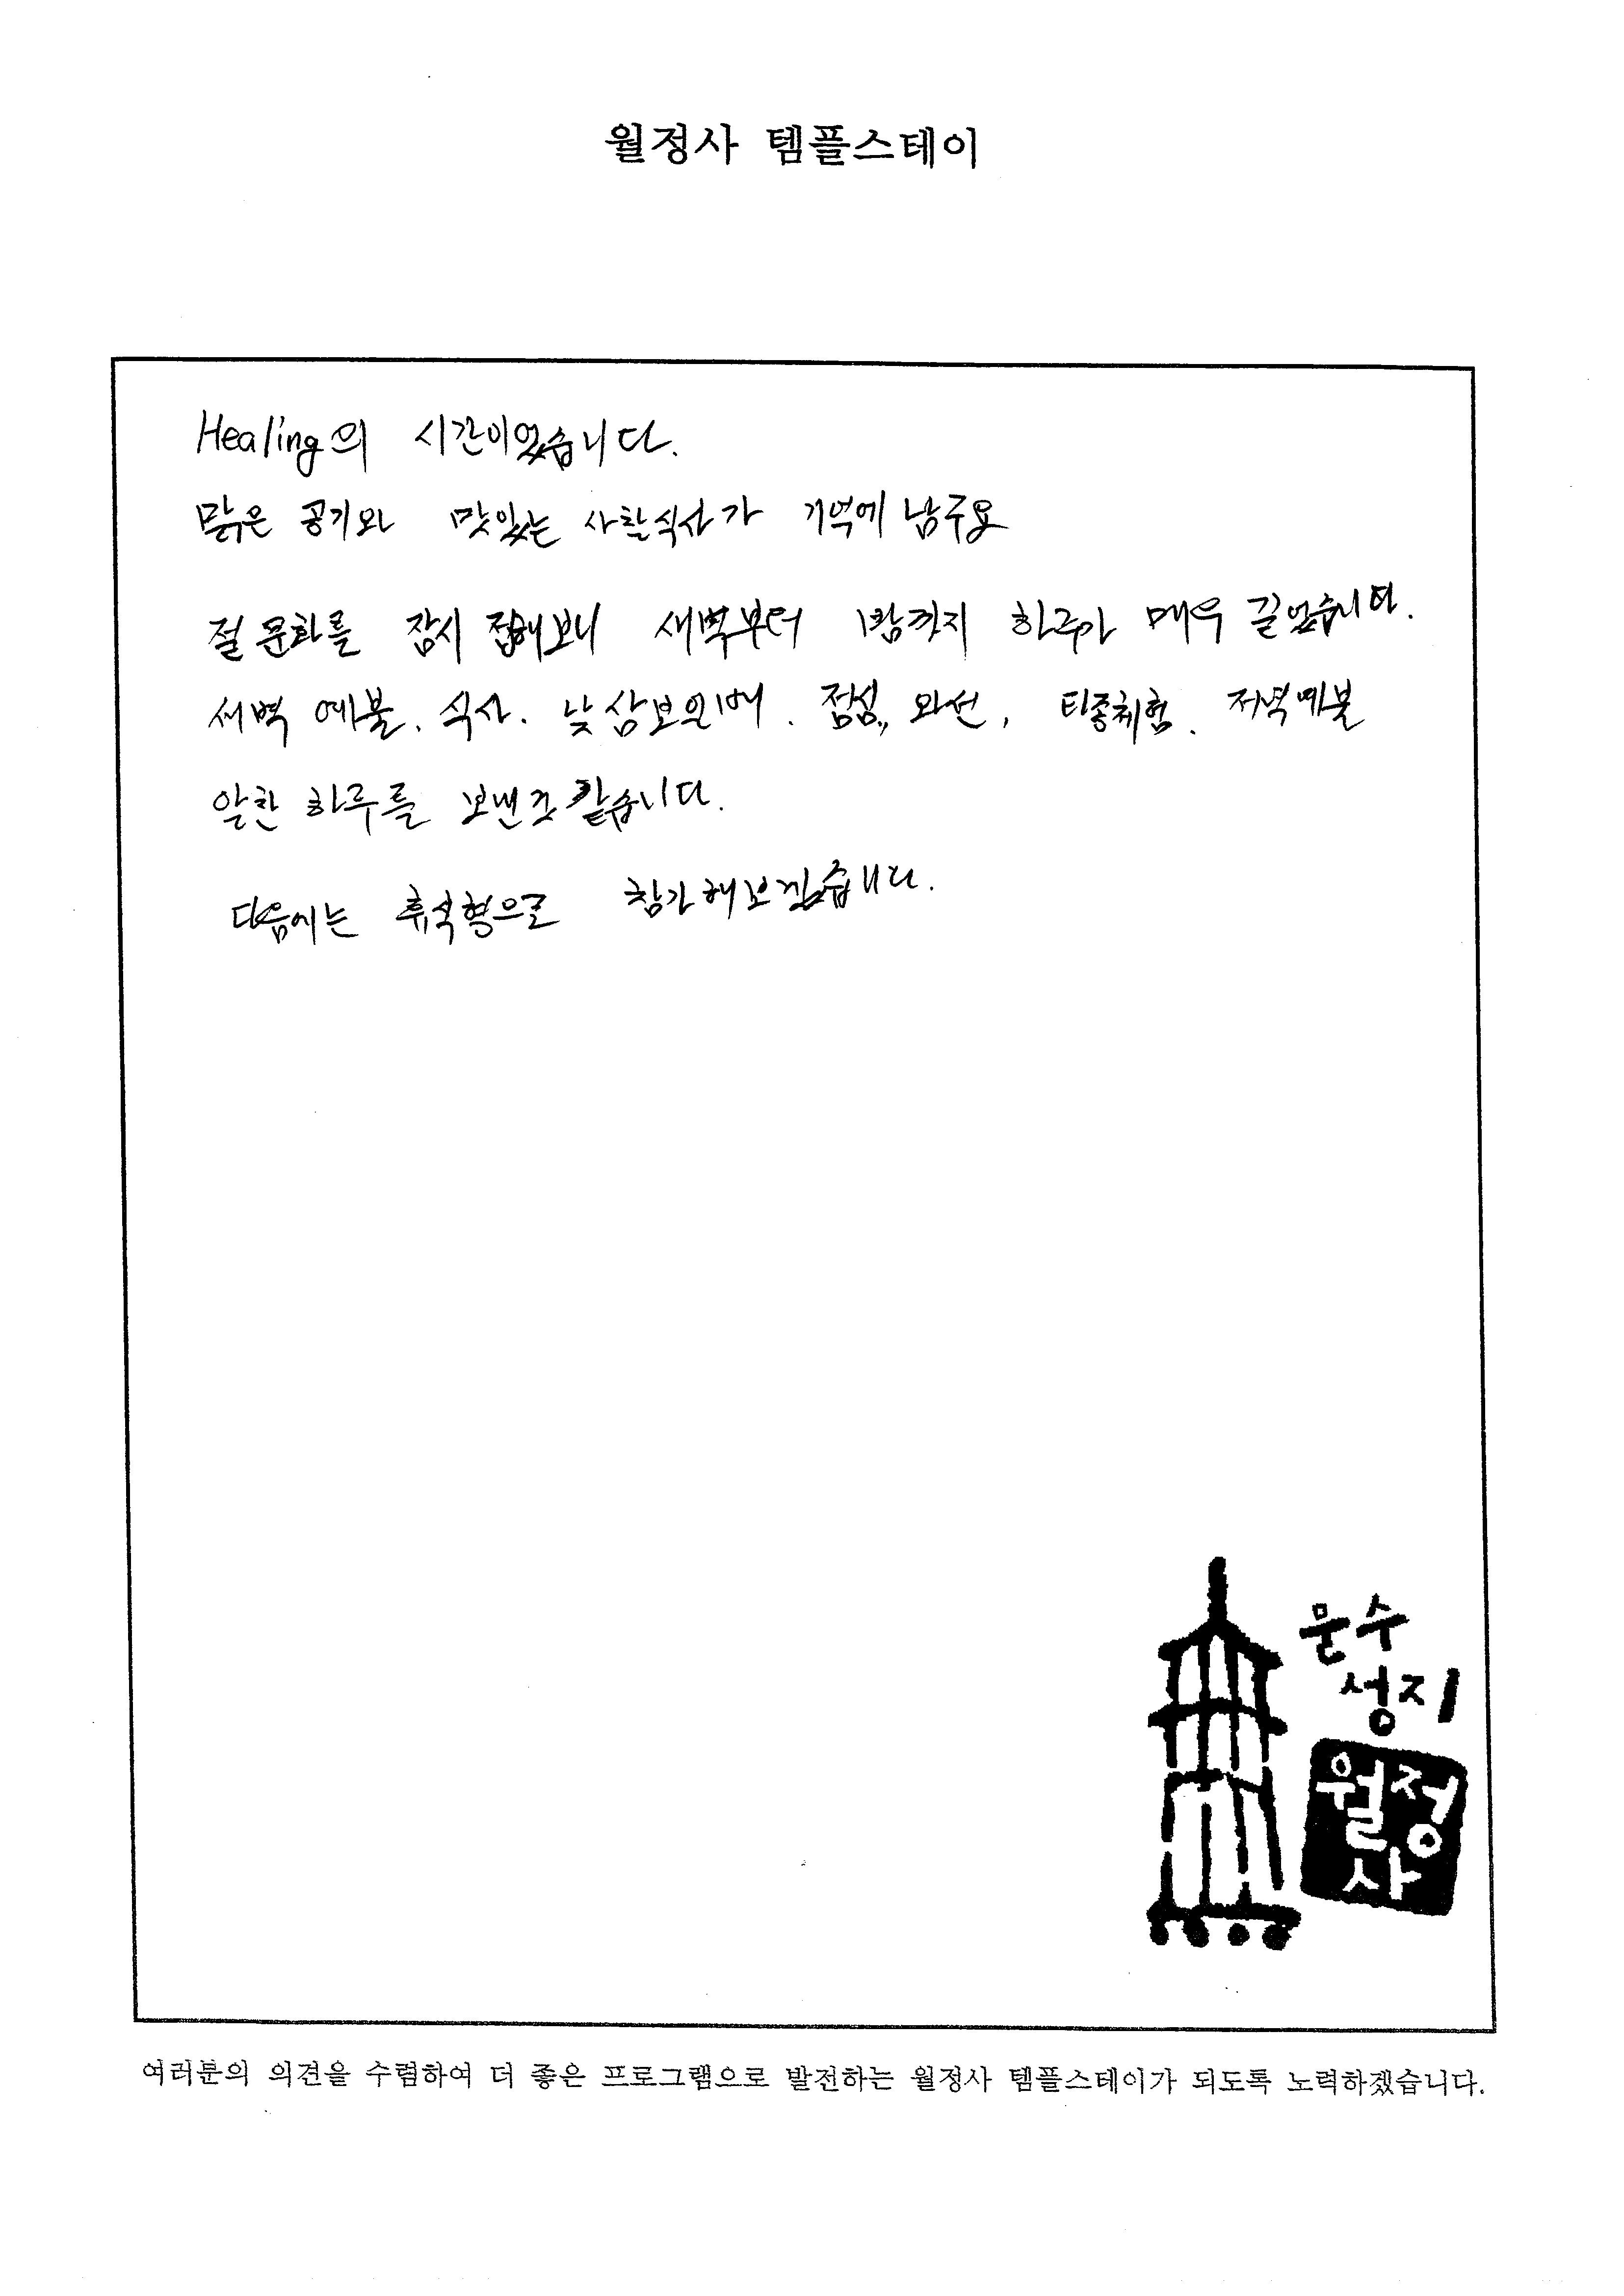 월정사 템플스테이
Healing의 시간이었습니다.
맑은 공기와 맛있는 사찰식사가 기억에 남구요
절 문화를 잠시 접해보니 새벽부터 밤까지 하루가 매우 길었습니다.
새벽 예불. 식사. 낮 삼보일배. 점심, 와선, 타종체험. 저녁예불
알찬 하루를 보낸것 같습니다.
다음에는 휴식형으로 참가해보겠습니다.
문수
성지
월정
사
여러분의 의견을 수렴하여 더 좋은 프로그램으로 발전하는 월정사 템플스테이가 되도록 노력하겠습니다.